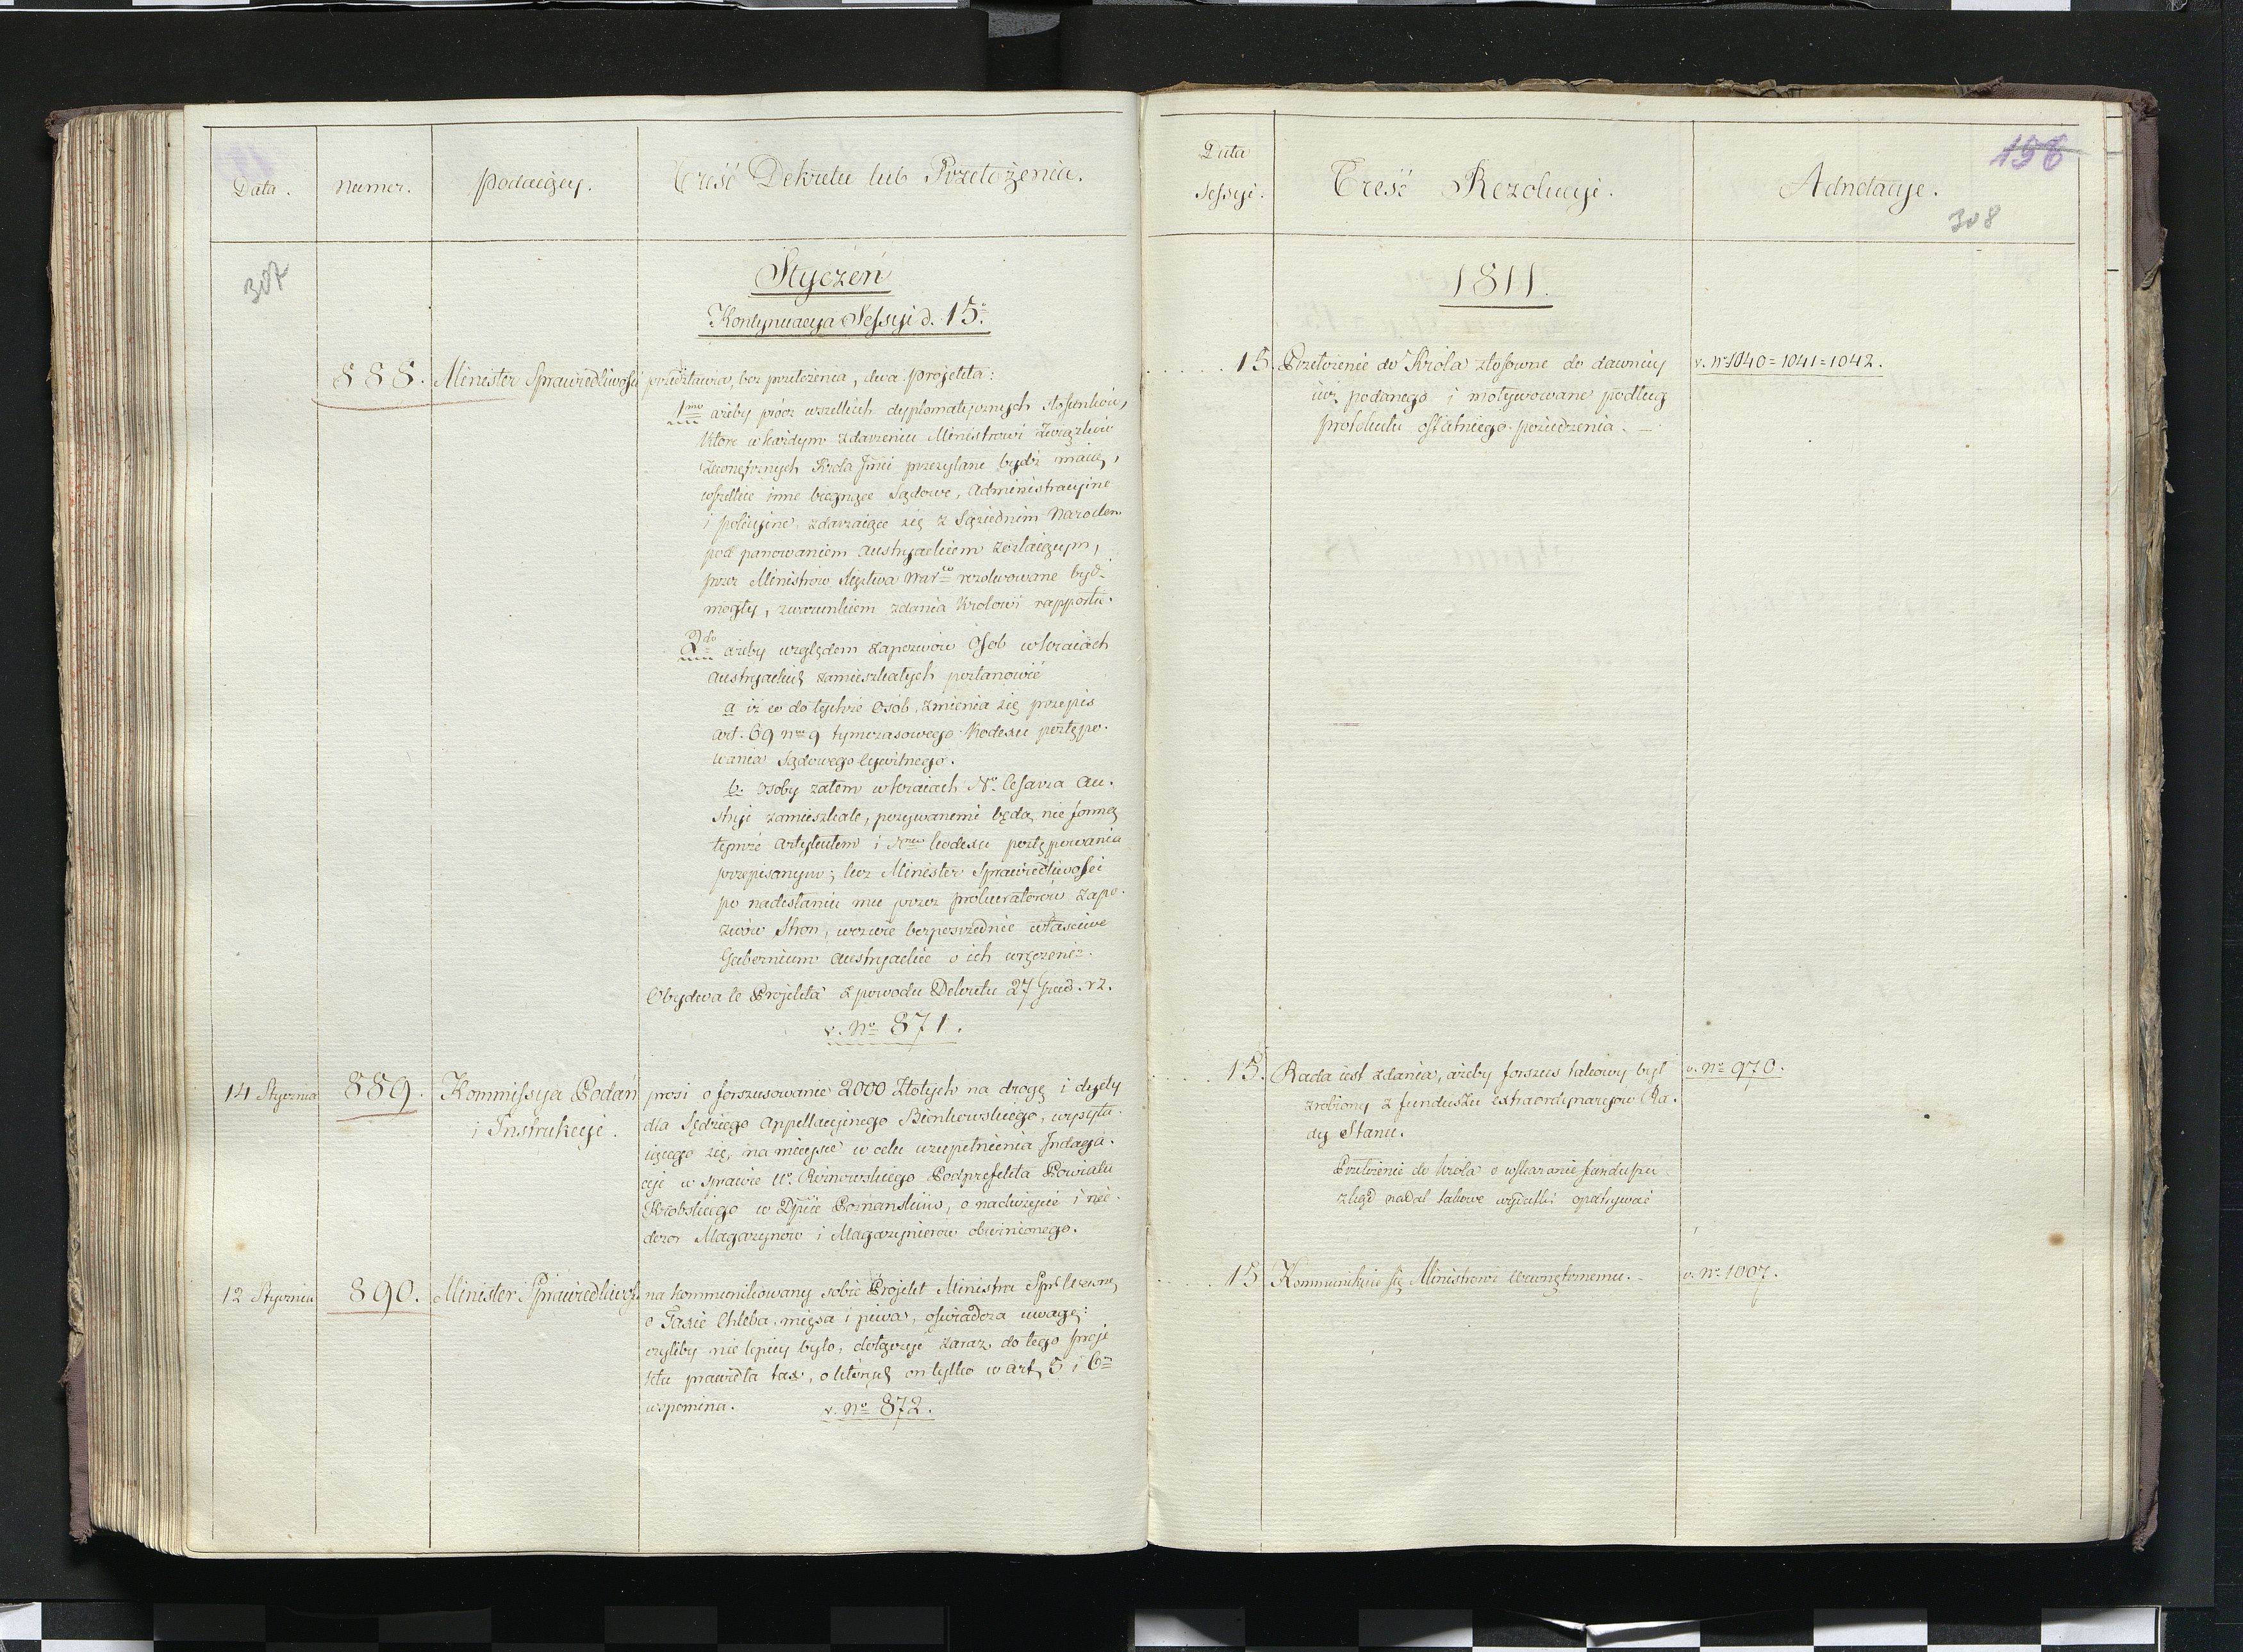 Data.
Numer.
Podaiący.
Treść Dekretu lub Przełożenia.
307
Styczeń
Kontynuacya Sessyi d. 15.
888. Minister Sprawiedliwości przedstawia, bez przełożenia, dwa projekta:
1mo ażeby prócz wszelkich dyplomatycznych stosunków,
które w każdym zdarzeniu Ministrowi Związków
Zewnętrznych Króla Jmci przesyłane bydź maią,
wszelkie inne bieżące Sądowe, Administracyine
i policyine, zdarzaiące się z Sąsiednim Narodem
pod panowaniem Austryackiem zostaiącym,
przez Ministrów Xięstwa Warso rezolwowane bydź
mogły, z warunkiem zdania Królowi rapportu.
2do ażeby względem zapozwów Osób w kraiach
Austryackich zamieszkałych postanowić
a iż co do tychże Osób, zmienia się przepis
art. 69 nro 9 tymczasowego Kodexu postępo-
wania Sądowego Cywilnego.
b. Osoby zatem w kraiach No Cesarza Au-
stryi zamieszkałe, pozywanemi będą nie formą
tymże artykułem i Nrem kodexu postępowania
przepisanym; lecz Minister Sprawiedliwości
po nadesłaniu mu przez prokuratorów Zapo-
zwów Stron, wezwie bezpośrednie właściwe
Gubernium Austryackie o ich wręczenie.
Obydwa te Projekta z powodu Dekretu 27 Grud. r z.
v. No 871.
14 Stycznia 889. Kommissya Podań
i Instrukcyi.
prosi o forszusowanie 2000 Złotych na drogę i dyety
dla Sędziego Appellacyinego Bionkowskiego, wysyła-
iącego się, na mieysce w celu uzupełnienia Indaga-
cyi w sprawie Podprefekta Powiatu
Krobskiego w Dpcie Poznańskim, o nadużycie i nie-
dozor Magazynów i Magazynierów obwinionego.
12 Stycznia 890. Minister Sprawiedliwości
na kommunikowany sobie Projekt Ministra Spr. Wewnę
o Taxie Chleba, mięsa i piwa, oświadcza uwagę:
czyliby nie lepiey było, dołączyć zaraz do tego proje
ktu prawidła tax, o których on tylko w art. 5 i 6m
wspomina. v. No 872.
Data
Sessyi.
Treść Rezolucyi.
Adnotacye.
156
308
1811.
15. Przełożenie do Króla stosowne do dawniey
iuż podanego i motywowane podług
protokułu ostatniego posiedzenia. —
v. No 1040 = 1041 = 1042.
15. Rada iest zdania, ażeby forszus takowy był
zrobiony z funduszu extraordynaryów Ra-
dy Stanu.
Przełożenie do Króla o wskazanie funduszu
zkąd nadal takowe wydatki opatrywać
v. No 970.
15. Kommunikuie się Ministrowi Wewnętrznemu. —
v. No 1007.